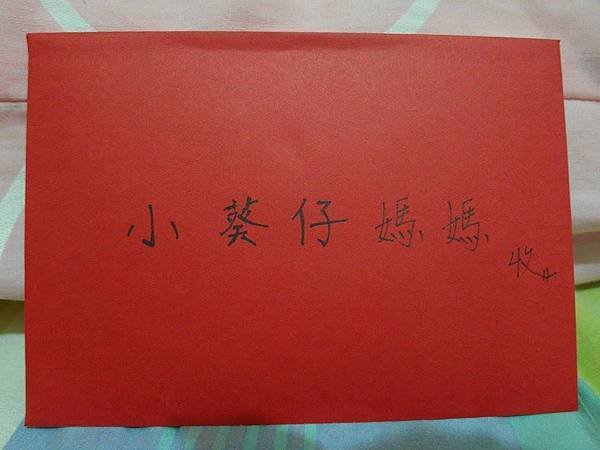 小葵仔媽媽
收